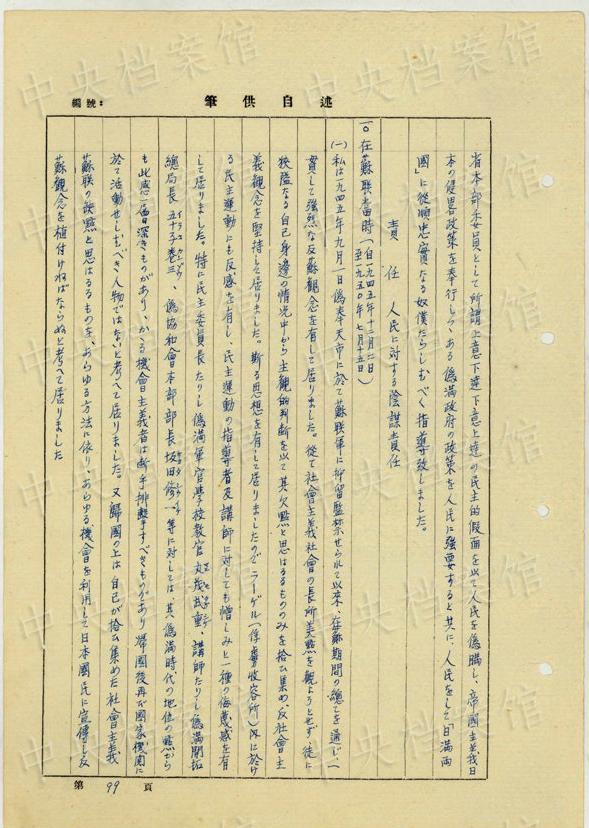 中央档案馆
編號：
筆供自述
省本部委員として所謂上意下達下意上達の民主的假面を以て人民を偽瞞し、帝國主義日
本の侵畧政策を奉行しつゝある偽満政府の政策を人民に強要すると共に、人民をして「日満両
國」に従順忠實なる奴僕たらしむべく指導致しました。
責任 人民に対する陰謀責任
一〇、在蘇聯當時（自一九四五年十二月二日至一九五〇年七月十五日）
(一)私は一九四五年九月一日偽奉天市に於て蘇聯軍に抑留監禁せられて以来、在蘇期間の總てを通じ、一
貫して強烈な反蘇観念を有して居りました。従て社會主義社會の長所美點を観ようとせず、徒に
狹隘なる自己身邊の情况中から主観的判断を以て其欠點と思はるるもののみを拾ひ集め、反社會主
義観念を堅持して居りました。斯る思想を有して居りましたのでラーゲル（俘虜收容所）内に於け
る民主運動にも反感を有し、民主運動の指導者及講師に対しても憎しみと一種の侮蔑感を有
して居りました。特に民主委員長たりし偽満軍官學校教官丸茂武重、講師たりし偽満開拓
總局長五十子巻三、偽協和會本部部長坂田修一等に対しては、其偽満時代の地位の點から
も此感一層深きものがあり、かゝる機會主義者は断乎排撃すべきものであり帰國後再び國家機関に
於て活動せしむべき人物ではないと考へて居りました。又歸國の上は自己が拾ひ集めた社會主義
蘇聯の缺點と思はるるものを、あらゆる方法に依り、あらゆる機會を利用して日本國民に宣傳し反
蘇観念を植付けねばならぬと考へて居りました
第 99 頁